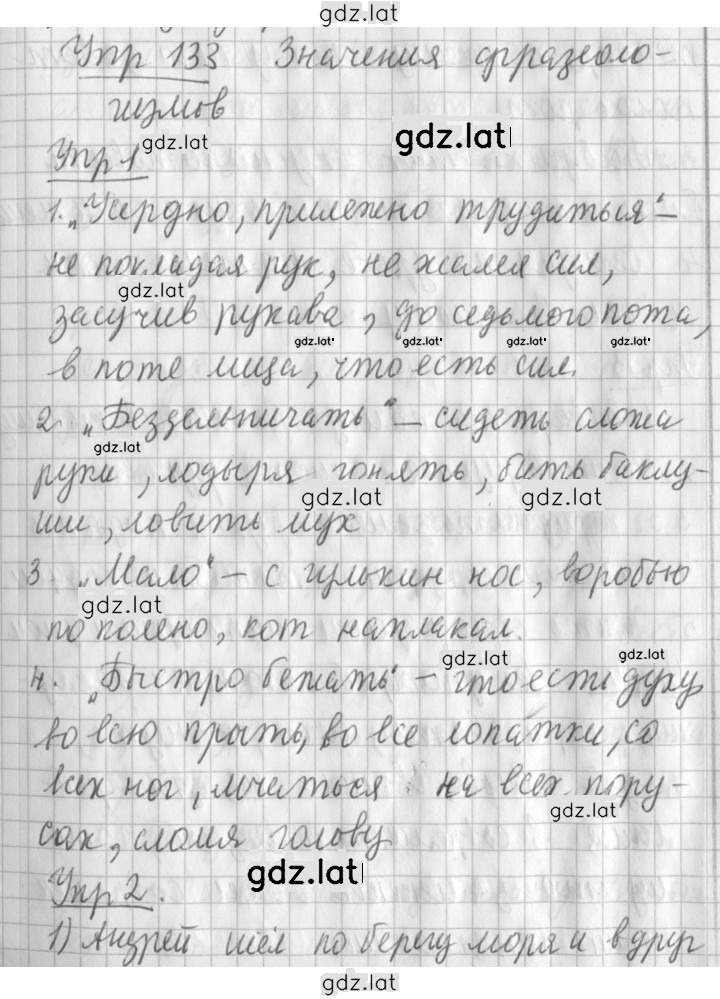 gdz.lat
Упр 133 Значения фразеоло-
гизмов
gdz.lat
gdz.lat
Упр 1
1. „Усердно, прилежно трудиться“ –
не покладая рук, не жалея сил,
gdz.lat
засучив рукава, до седьмого пота,
gdz.lat gdz.lat gdz.lat gdz.lat
в поте лица, что есть сил.
2. „Бездельничать“ – сидеть сложа
gdz.lat
руки, лодыря гонять, бить баклу-
gdz.lat gdz.lat
ши, ловить мух
3. „Мало“ – с гулькин нос, воробью
gdz.lat
по колено, кот наплакал.
gdz.lat gdz.lat
4. „Быстро бежать“ – что есть духу,
во всю прыть, во все лопатки, со
всех ног, мчаться на всех пару-
gdz.lat
сах, сломя голову
gdz.lat
Упр 2.
1) Андрей шёл по берегу моря и вдруг
gdz.lat